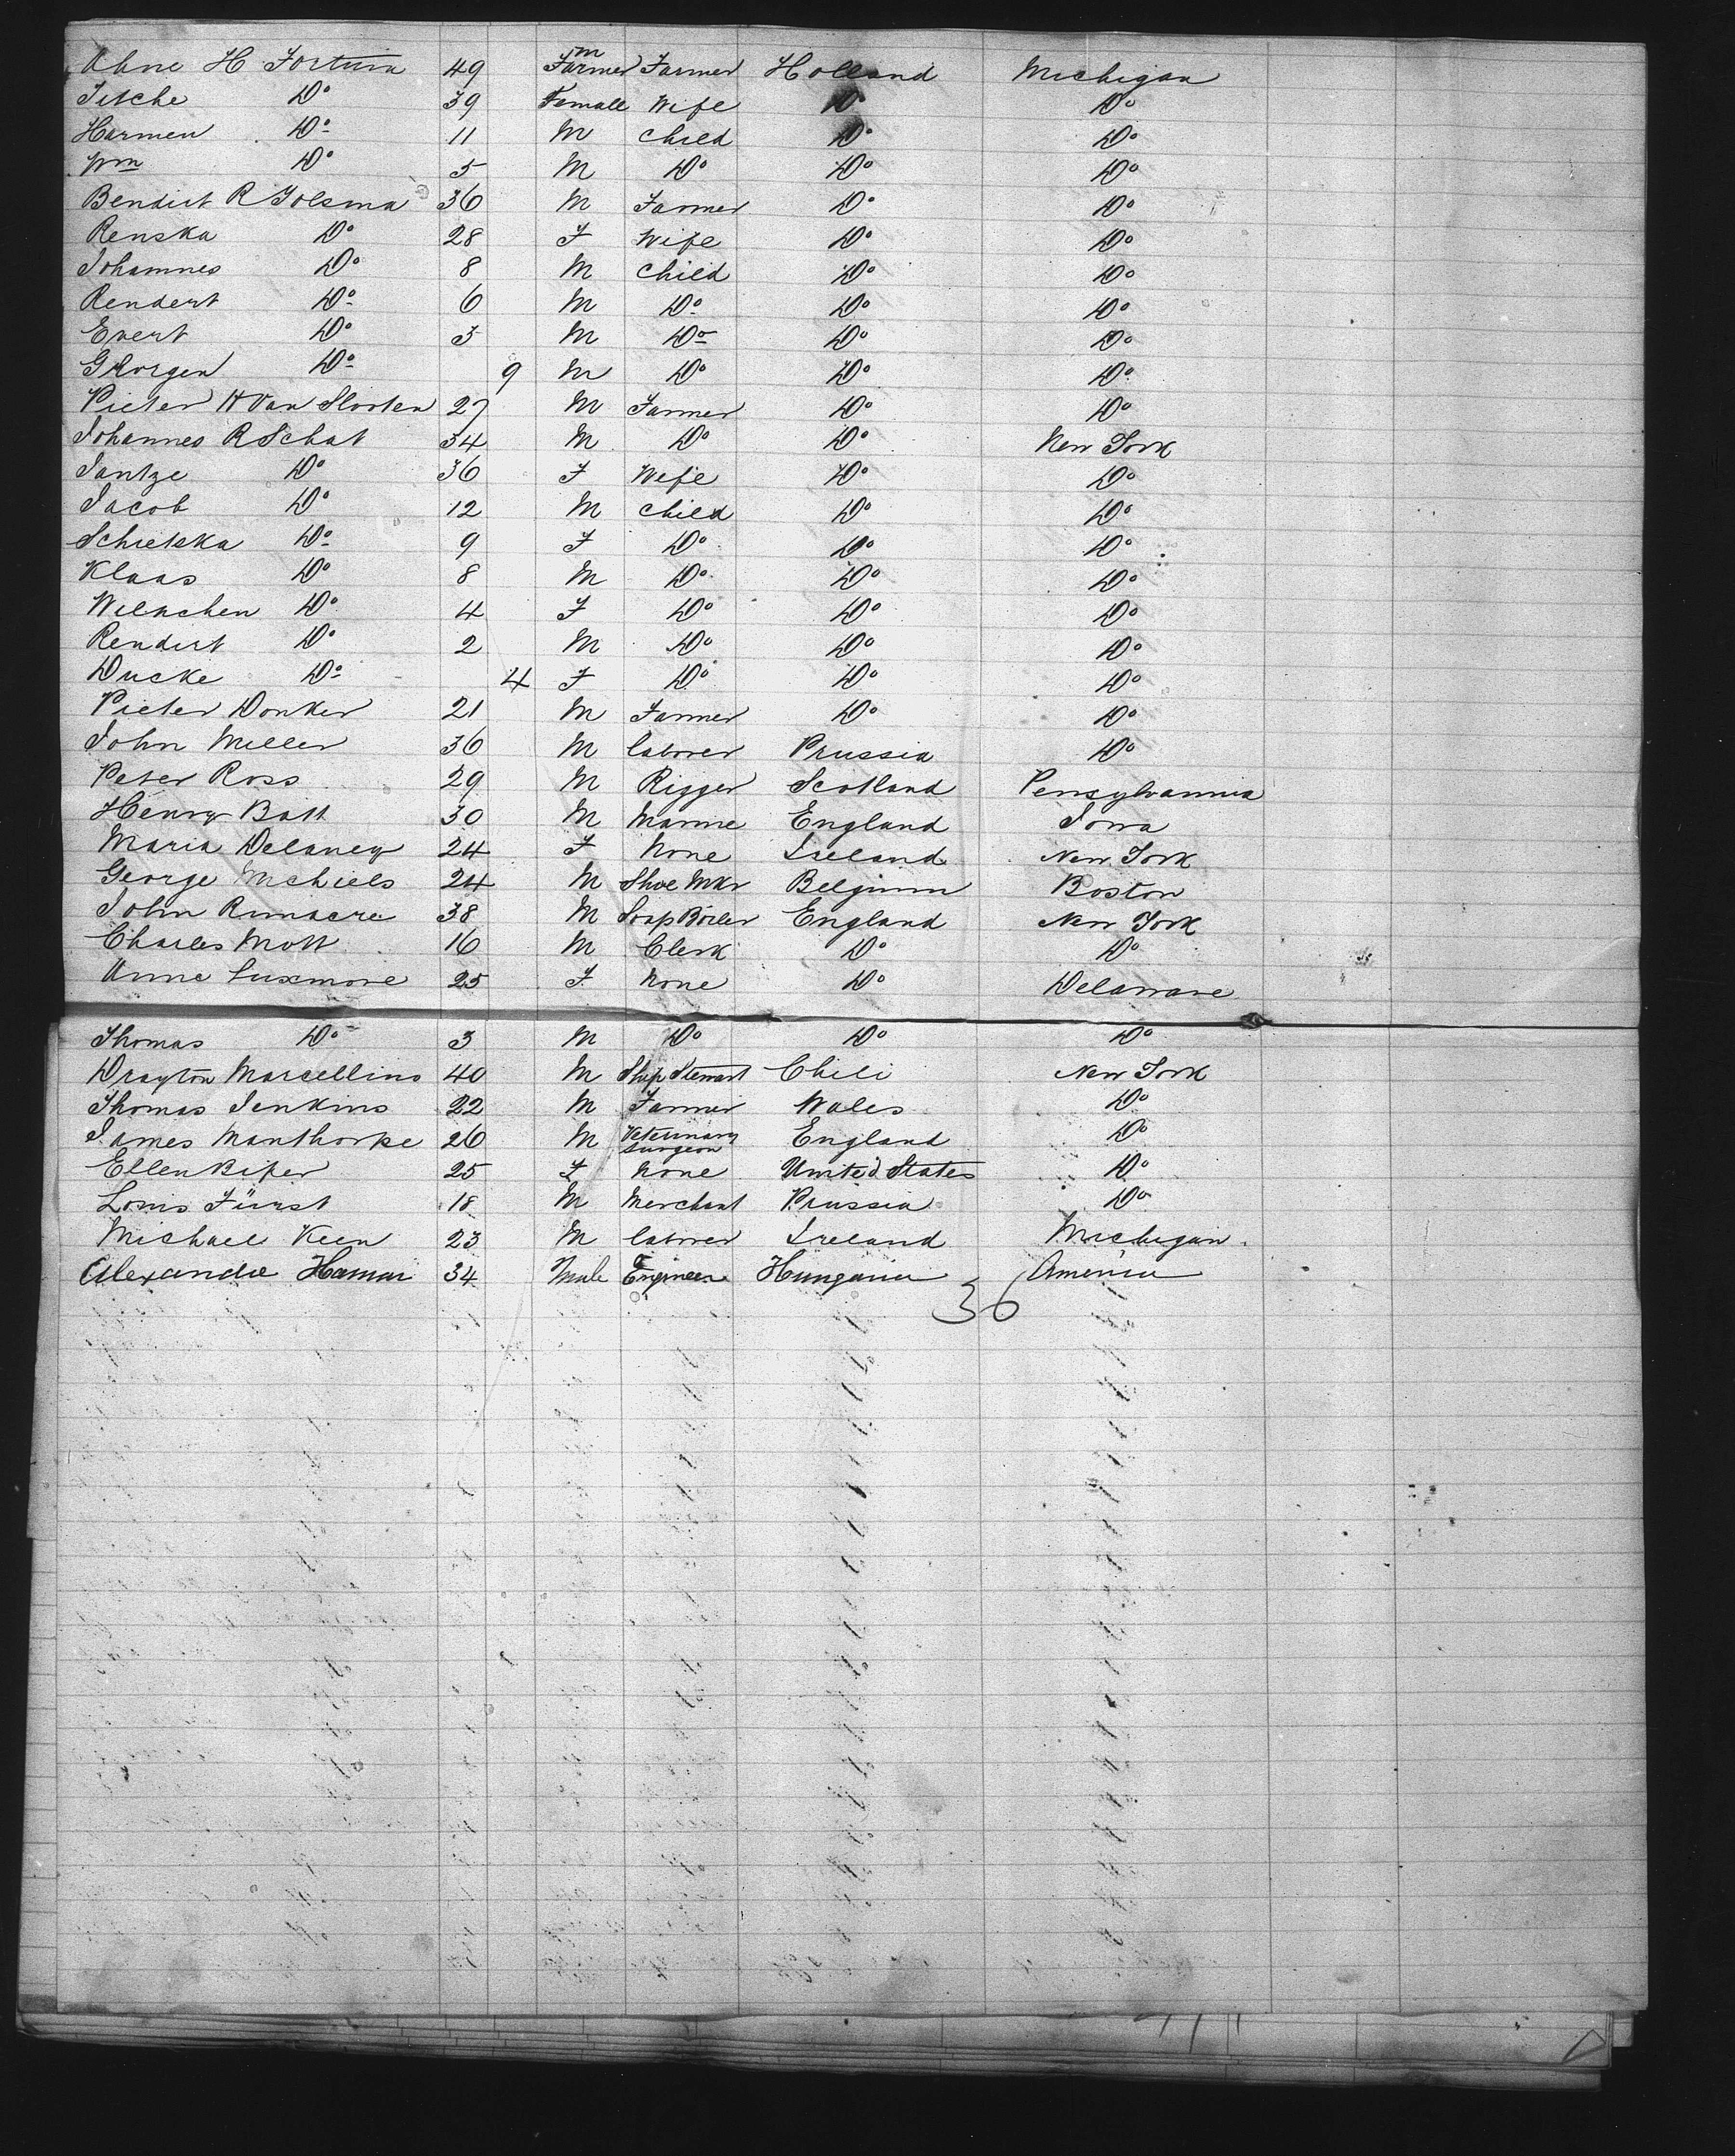 Ahne H Fortuin 49 Farmer m Farmer Holland Michigan
Jitsche Do 39 Female Wife Do Do
Harmen Do 11 M Child Do Do
Wm Do 5 M Do Do Do
Bendert R Tolsma 36 M Farmer Do Do
Renska Do 28 F Wife Do Do
Johannes Do 8 M Child Do Do
Rendert Do 6 M Do Do Do
Evert Do 3 M Do Do Do
Do 9 M Do Do Do
Pieter H Van Slooten 27 M Farmer Do Do
Johannes R Schat 34 M Do Do New York
Jantze Do 36 F Wife Do Do
Jacob Do 12 M Child Do Do
Schietska Do 9 F Do Do Do
Klaas Do 8 M Do Do Do
Welmchen Do 4 F Do Do Do
Rendert Do 2 M Do Do Do
Ducke Do 4 F Do Do Do
Pieter Donker 21 M Farmer Do Do
John Miller 36 M laborer Prussia Do
Peter Ross 29 M Rigger Scotland Pensylvannia
Henry Batt 30 M Marine England Iowa
Maria Delaney 24 F None Ireland New York
George Michiels 24 M Shoe Mkr Belgium Boston
John Runacre 38 M Soap Boiler England New York
Charles Mott 16 M Clerk Do Do
Anne Luxmore 25 F None Do Delaware
Thomas Do 3 M Do Do Do
Drayton Marcellino 40 M Ship Stewart Chili New York
Thomas Jenkins 22 M Farmer Wales Do
James Manthorpe 26 M Veterinary Surgeon England Do
Ellen Bifer 25 F None United States Do
Louis Fürst 18 M Merchant Prussia Do
Michael Keen 23 M laborer Ireland Michigan
Alexandre Hamar 34 Male Engineer Hungaria America
36